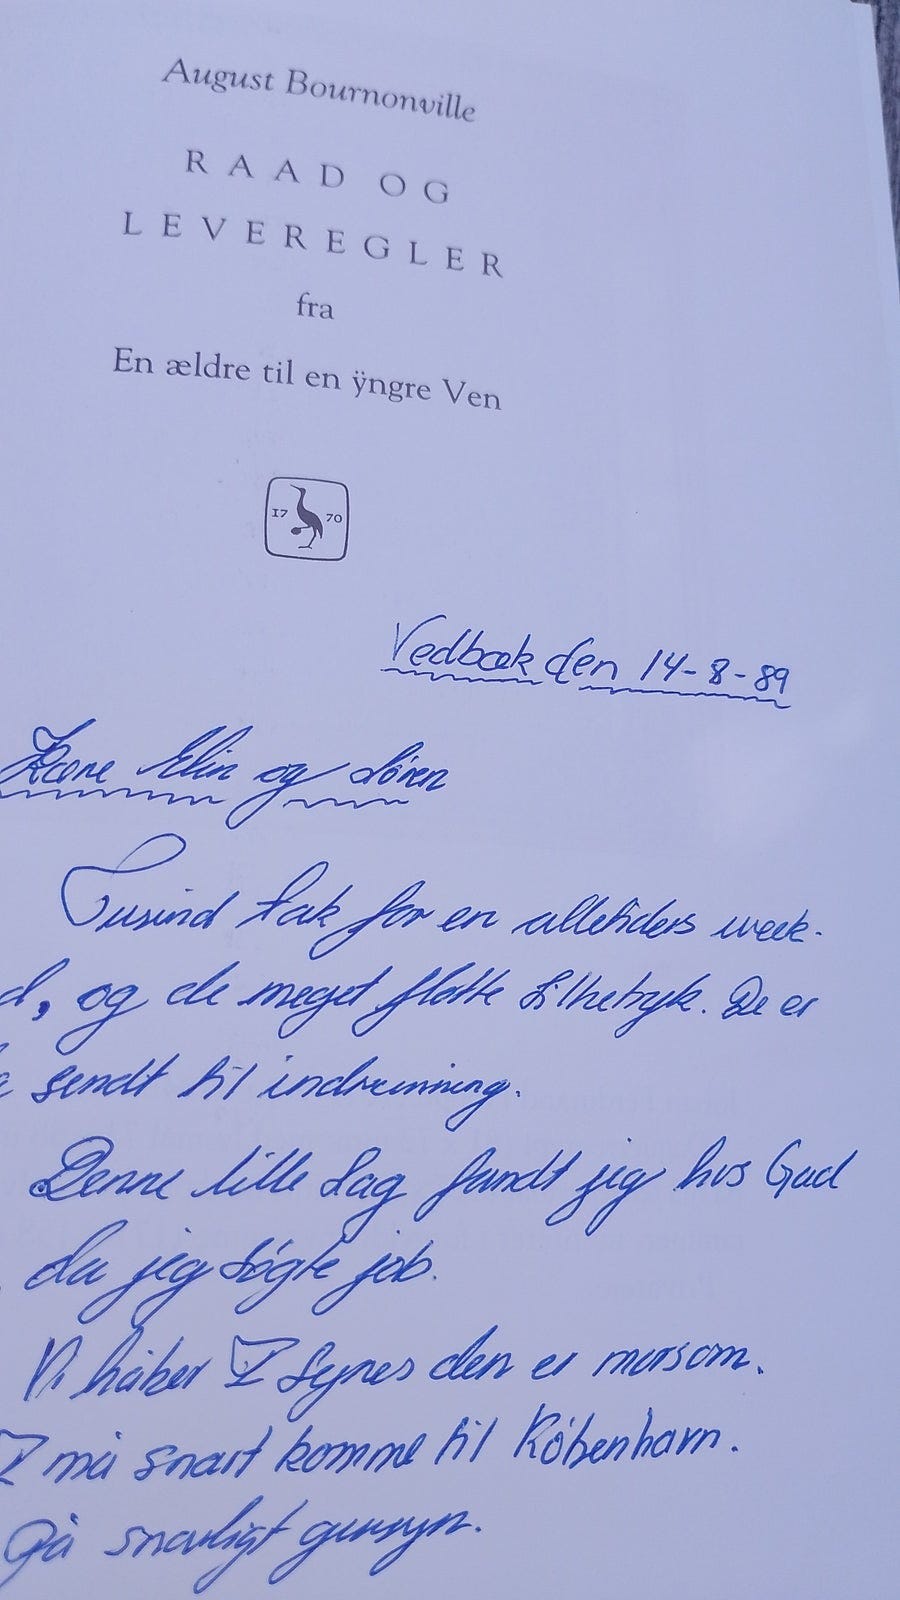 August Bournonville
RAAD OG
LEVEREGLER
fra
En ældre til en ÿngre Ven
17 70
Vedbæk den 14-8-89
Kære Elin og Søren
Tusind tak for en alletiders week-
d, og de meget flotte Silketryk. De er
sendt til indramning.
Denne lille Sag fandt jeg hos Gad
da jeg søgte job.
Vi håber I Synes den er morsom.
I må snart komme til København.
På snarligt gensyn.